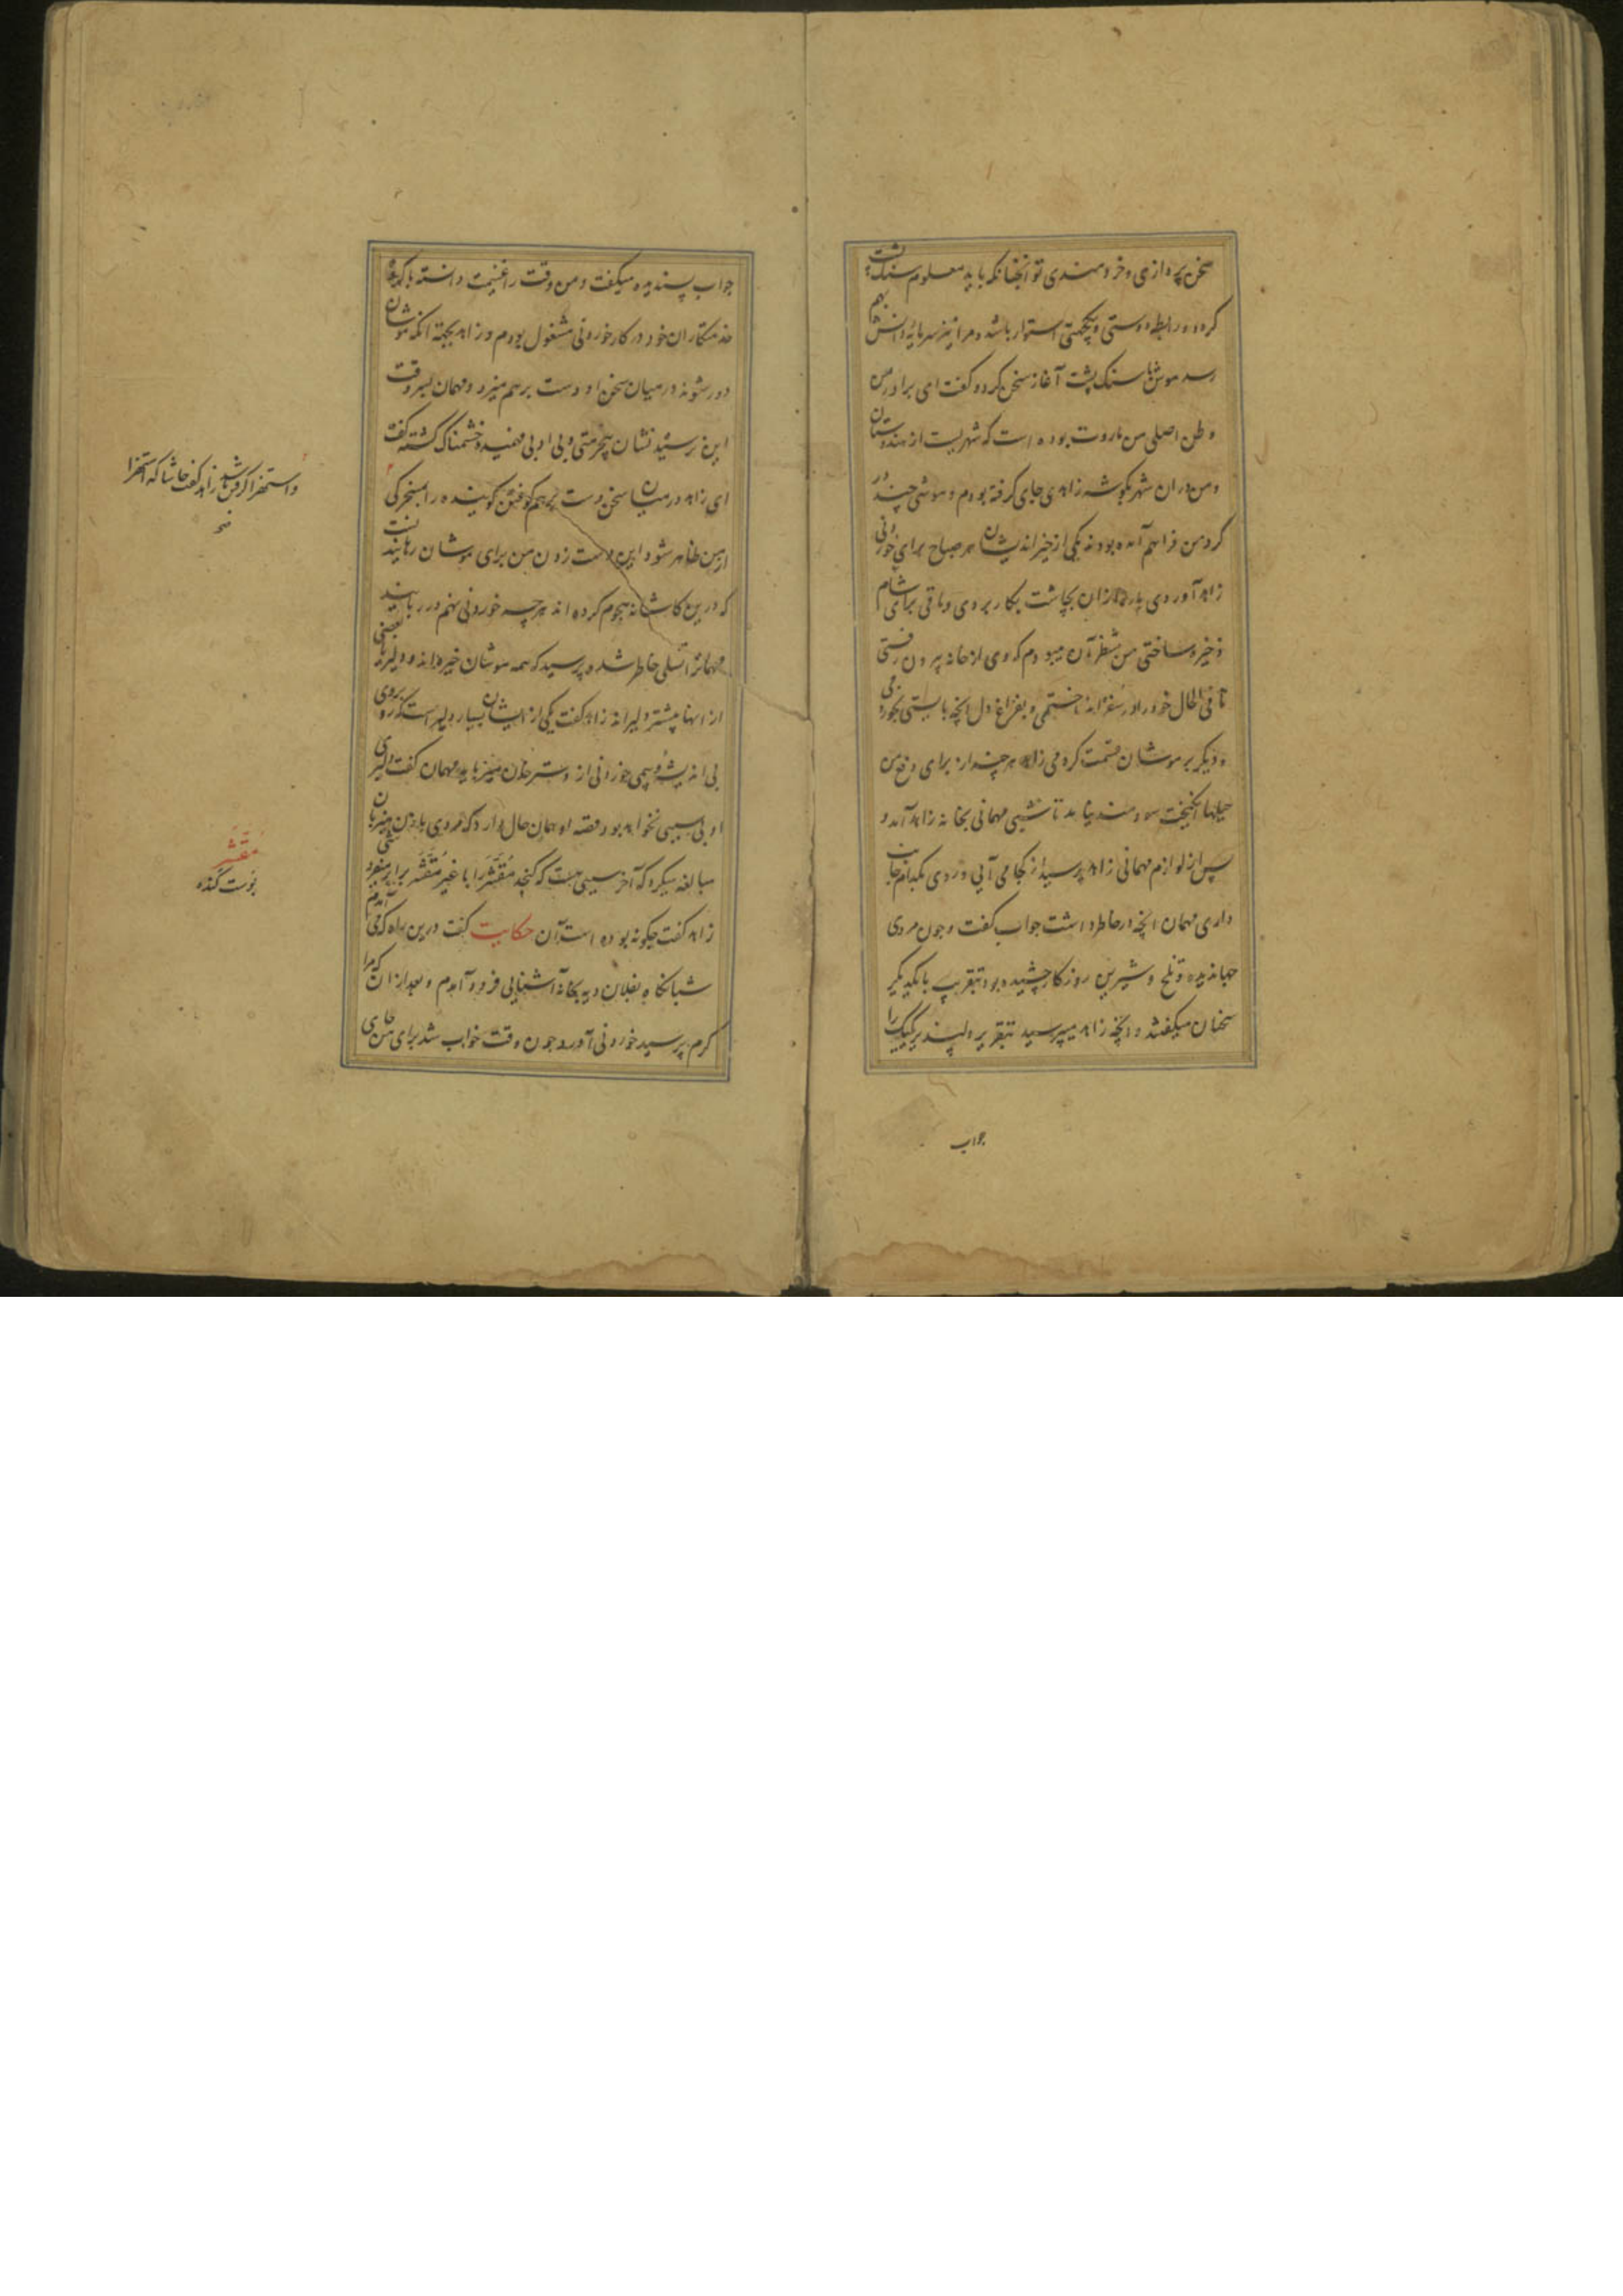 سخن پردازی و خردمندی تو آنچنانکه باید معلوم سنک پشت
کردد و رابطه دوستی و یکجهتی استوار باشد و مرا نیز سرمایه دانش بهم
رسد موش با سنک پشت آغاز سخن کرد و کفت ای برادر من
وطن اصلی من ماروت بوده است که شهریست از هندوستان
و من دران شهر بکوشه زاهدی جای کرفته بودم و موشی چند در
کرد من فراهم آمده بودند یکی از خیراندیشان هر صباح برای خوردنی
زاهد آوردی پاره ازان بچاشت بکار بردی و باقی برای شام
ذخیره ساختی من منتظر آن میبودم که وی از خانه بیرون رفتی
تا فی الحال خود را در سفره انداختمی و بفراغ دل انچه بایستی بخوردمی
و دیکر بر موشان قسمت کردمی زاهد هر چند از برای دفع من
حیلها انکیخت سودمند نیامد تا شبی مهمانی بخانه زاهد آمد و
پس از لوازم مهمانی زاهد پرسید از کجا می آیی و روی بکدام جانب
داری مهمان انچه در خاطر داشت جواب کفت و چون مردی
جهاندیده و تلخ و شیرین روزکار چشیده بود بتقریب با یکدیکر
سخنان میکفتند و انچه زاهد میپرسید بتقریر دلپذیر یکیک را
جواب
جواب پسندیده میکفت و من وقت را غنیمت دانسته با کروه
خدمتکاران خود در کار خوردنی مشغول بودم و زاهد بجهة انکه موشان
دور شوند درمیان سخن او دست برهم میزد و مهمان بسر وقت
این نرسیده نشان بیحرمتی و بی ادبی فهمیده خشمناک کشته کفت
ای زاهد درمیان سخن دست برهم کوفتن کوینده را بمسخرکی
از من ظاهر شود این دست زدن من برای موشان رهاینده است
که درین کاشانه هجوم کرده اند هرچه خوردنی نهم در ربایند
مهمانرا تسلی خاطر شده پرسید که همه موشان خیره اند و دلیر یا بعضی
از اینها بیشتر دلیراند زاهد کفت یکی از ایشان بسیار دلیر است که روبروی
بی اندیشه و بیمی خوردنی از دسترخان میرباید مهمان کفت دلیری
او بی سببی نخواهد بود و قصه او همان حال دارد که مردی با زن میزبان
مبالغه میکرد که آخر سببی هست که کنجد مقشر را با غیر مقشر برابر میفروشی
زاهد کفت چکونه بوده است آن حکایت کفت درین راه که می آمدم
شبانکاه بفلان دیه بخانه آشنایی فرود آمدم و بعد ازان که مرا
کرم پرسید خوردنی آورد چون وقت خواب شد برای من جای
و استهزا کردن باشد زاهد کفت حاشا که استهزا
مقشر
پوست کنده